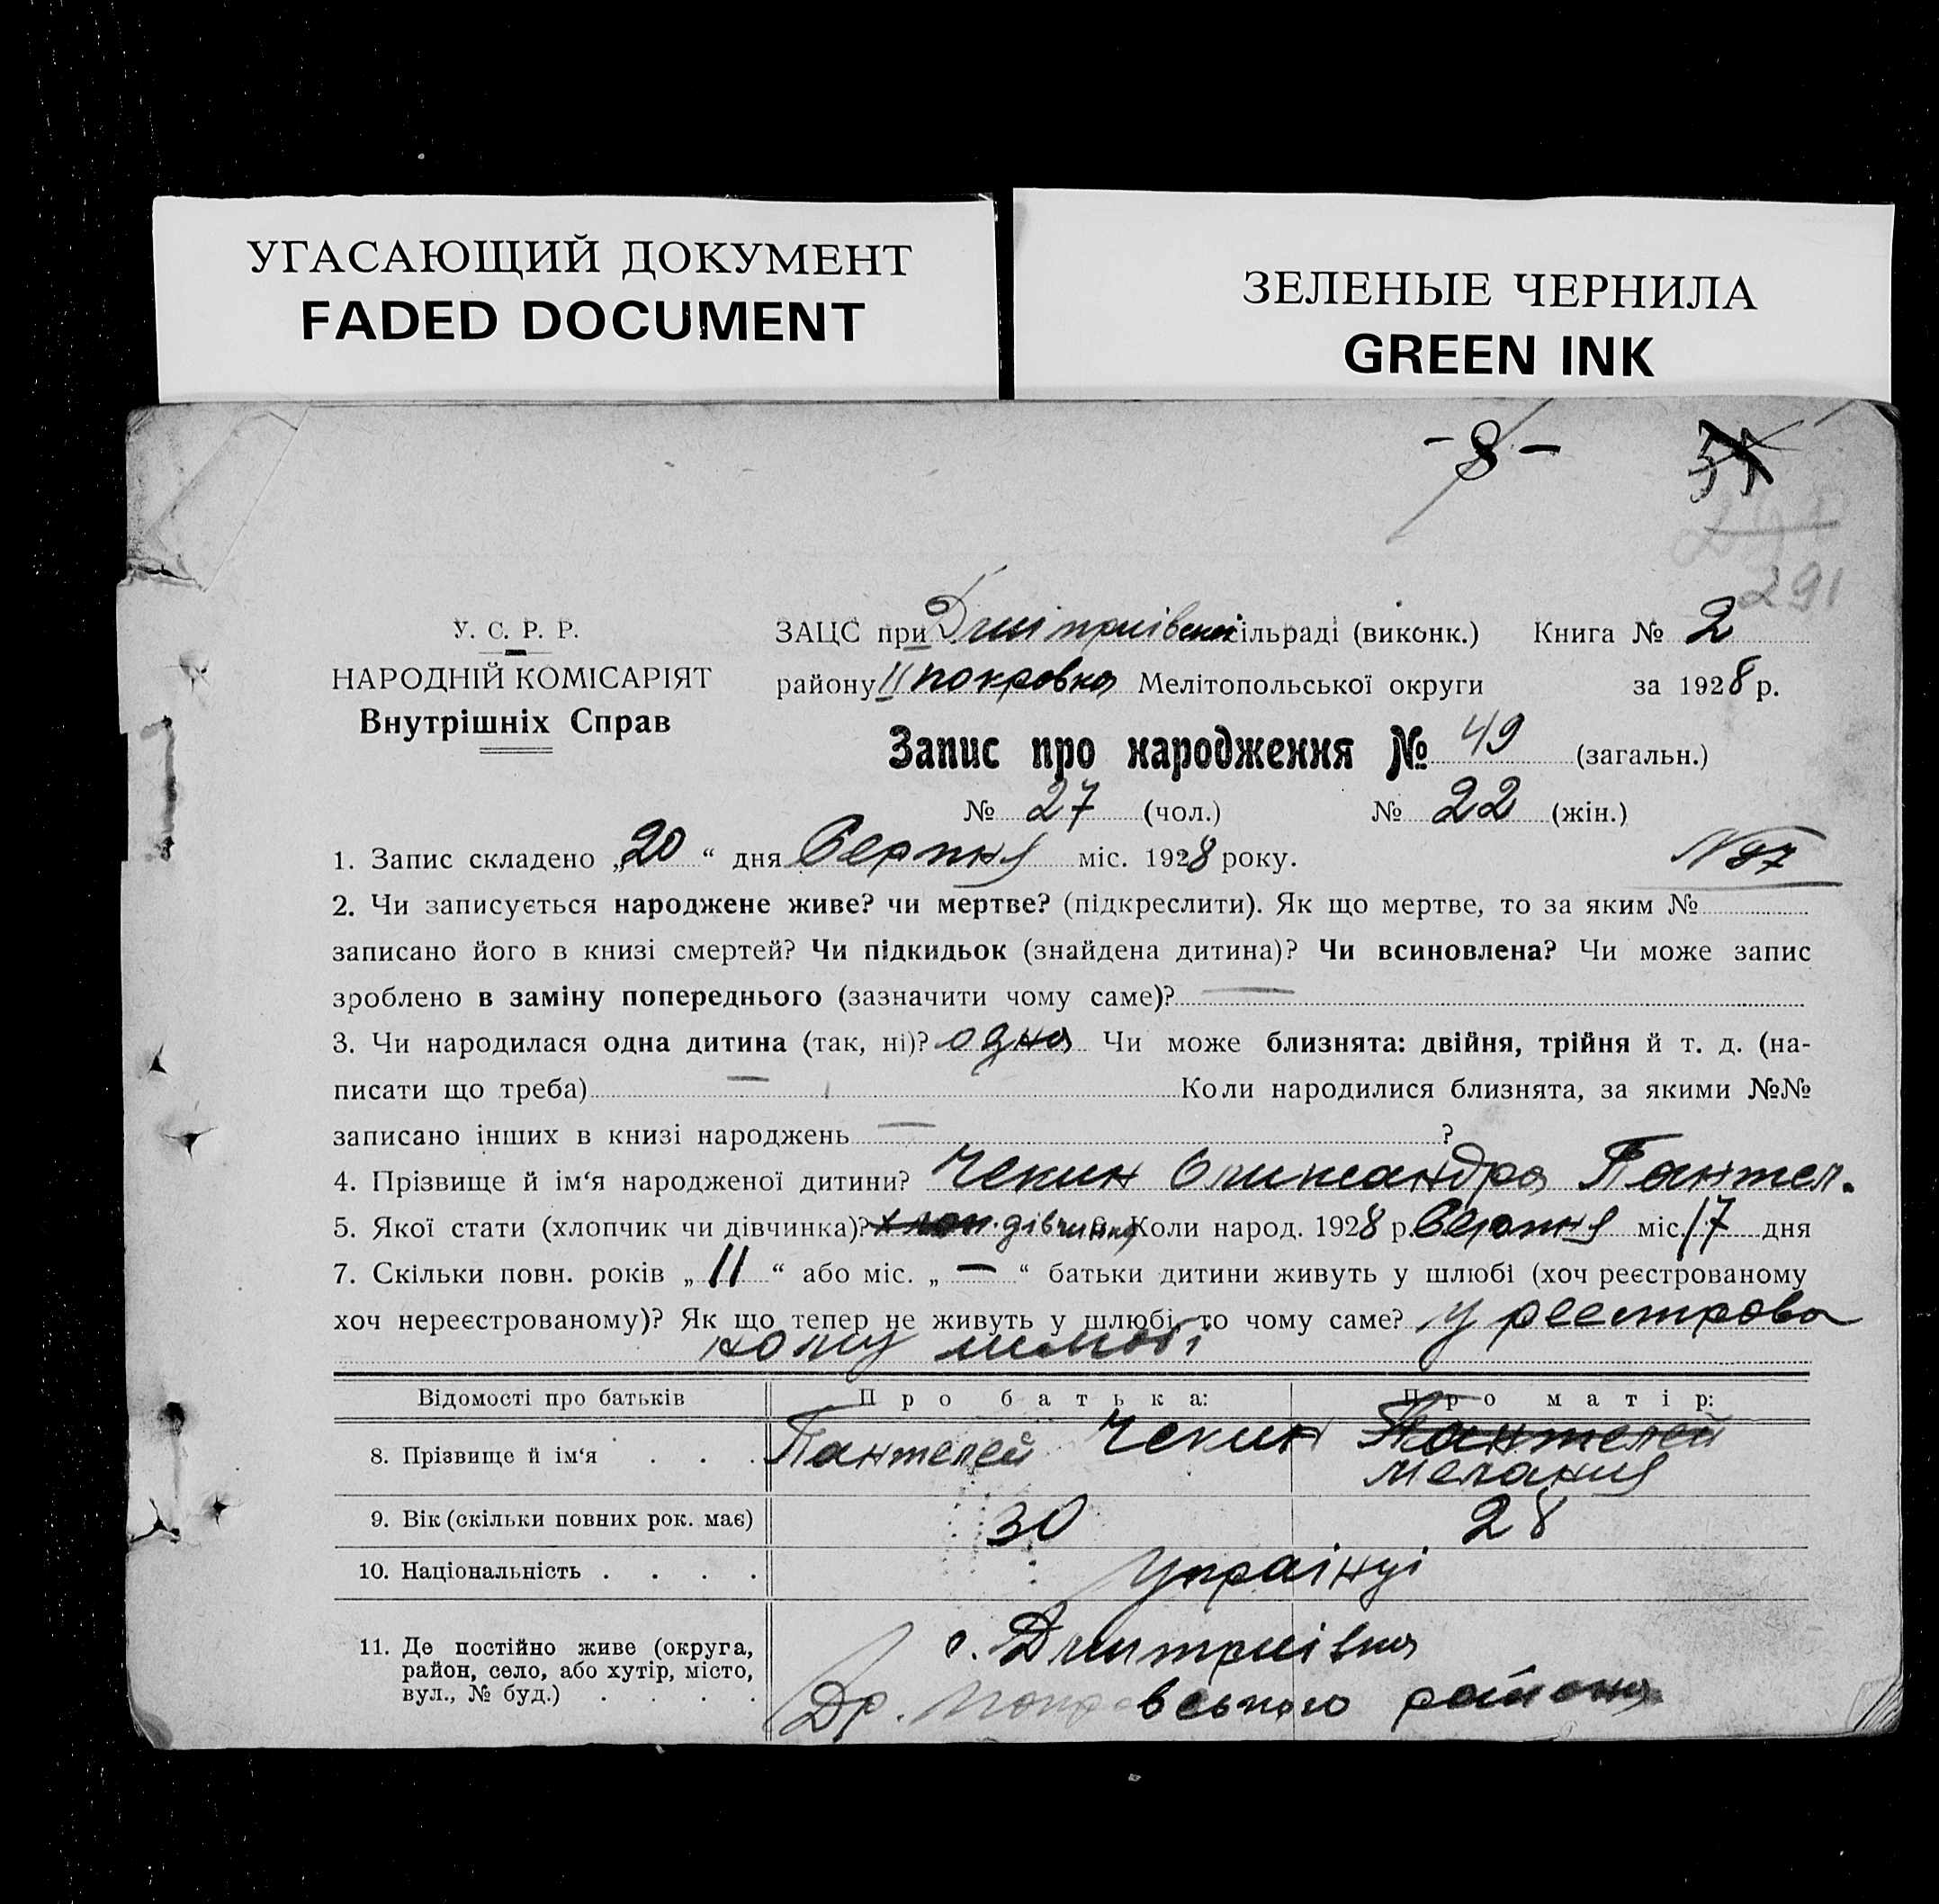 УГАСАЮЩИЙ ДОКУМЕНТ
FADED DOCUMENT
ЗЕЛЕНЫЕ ЧЕРНИЛА
GREEN INK
-8-
291
У. С. Р. Р.
НАРОДНІЙ КОМІСАРІЯТ
Внутрішніх Справ
ЗАЦС при Дмітриівській сільраді (виконк.) Книга № 2
району ІІ покровка Мелітопольської округи за 1928 р.
Запис про народження № 49 (загальн.)
№ 27 (чол.) № 22 (жін.)
1. Запис складено „20“ дня Серпня міс. 1928 року. N 87
2. Чи записується народжене живе? чи мертве? (підкреслити). Як що мертве, то за яким №
записано його в книзі смертей? Чи підкидьок (знайдена дитина)? Чи всиновлена? Чи може запис
зроблено в заміну попереднього (зазначити чому саме)? —
3. Чи народилася одна дитина (так, ні)? одна Чи може близнята: двійня, трійня й т. д. (на-
писати що треба) — Коли народилися близнята, за якими №№
записано інших в книзі народжень — ?
4. Прізвище й ім‘я народженої дитини? Чекин Олександра Пантел.
5. Якої стати (хлопчик чи дівчинка)? хлоп. дівчинка 6. Коли народ. 1928 р. Серпня міс. 17 дня
7. Скільки повн. років „11“ або міс. „—“ батьки дитини живуть у шлюбі (хоч реєстрованому
хоч нереєстрованому)? Як що тепер не живуть у шлюбі, то чому саме? у реестрова
ному шлюбі
Відомості про батьків Про батька: Про матір:
8. Прізвище й ім‘я . . . Пантелей Чекин Пантелей
Мелания
9. Вік (скільки повних рок. має) 30 28
10. Національність . . . . Українці
11. Де постійно живе (округа,
район, село, або хутір, місто,
вул., № буд.) . . . .
с. Дмитриівка
Др. Покровського района